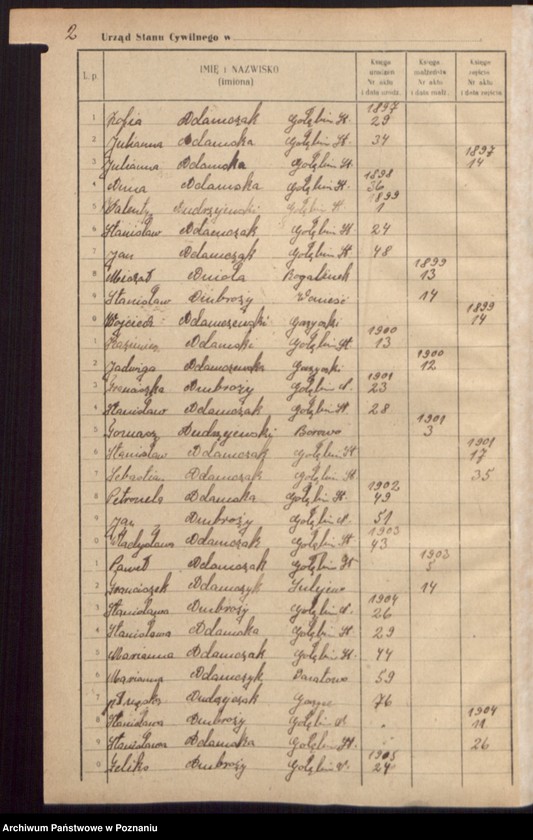 2 Urząd Stanu Cywilnego w
L. p. IMIĘ i NAZWISKO (imiona) Księga urodzeń Nr. aktu i data urodz. Księga małżeństw Nr. aktu i data małż. Księga zejścia Nr. aktu i data zejścia
1897
1 Zofia Adamczak Gołębin St. 29
2 Julianna Adamska Gołębin St. 34
1897
3 Julianna Adamska Gołębin St. 14
1898
4 Anna Adamska Gołębin St. 36
1899
5 Walenty Andrzejewski Gołębin St. 1
6 Stanisław Adamczak Gołębin St. 24
7 Jan Adamczak Gołębin St. 48
1899
8 Michał Anioła 13
9 Stanisław Ambroży 14
1899
0 Wojciech Adamczewski 14
1900
1 Kazimierz Adamski Gołębin St. 13
1900
2 Jadwiga Adamczewska 12
1901
3 Franciszka Ambroży Gołębin 23
4 Stanisław Adamczak Gołębin St. 28
1901
5 Andrzejewski Borowo 3
1901
6 Stanisław Adamczak Gołębin St. 17
7 Adamczak Gołębin St. 35
1902
8 Petronela Adamska Gołębin St. 49
9 Jan Ambroży Gołębin 51
1903
0 Władysława Adamczak Gołębin St. 43
1903
1 Paweł Adamczak Gołębin St. 5
2 Franciszek Adamczyk 14
1904
3 Stanisława Ambroży Gołębin 26
4 Stanisława Adamska Gołębin St. 29
5 Marianna Adamczak Gołębin St. 44
6 Marianna Adamczyk 59
7 76
1904
8 Stanisława Ambroży Gołębin 11
9 Stanisława Adamska Gołębin St. 26
1905
0 Feliks Ambroży Gołębin 24
Archiwum Państwowe w Poznaniu